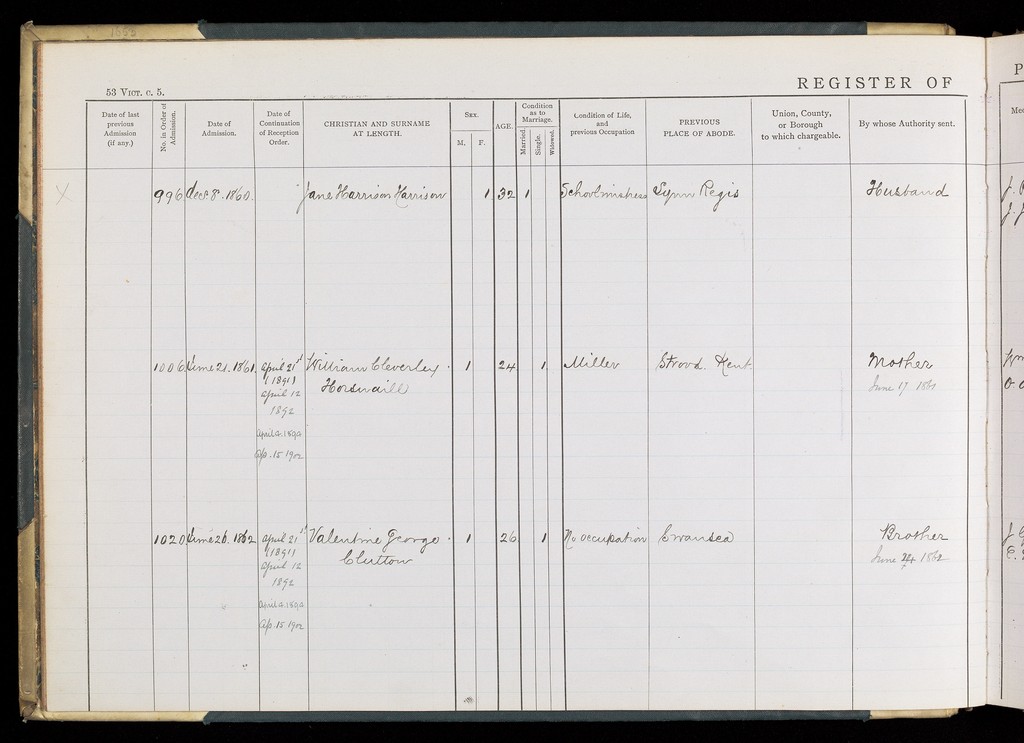 1858
REGISTER OF
53 VICT. c. 5.
Date of last previous Admission (if any.)
No. in Order of Admission.
Date of Admission.
Date of Continuation of Reception Order.
CHRISTIAN AND SURNAME AT LENGTH.
SEX.
M. F.
AGE.
Condition as to Marriage.
Married. Single. Widowed.
Condition of Life, and previous Occupation
PREVIOUS PLACE OF ABODE.
Union, County, or Borough to which chargeable.
By whose Authority sent.
X 996 Dec. 8. 1860. Jane Harrison Harrison 1 32 1 Schoolmistress Lynn Regis Husband
1006 June 21. 1861. April 21st William Cleverley 1 24 1 Miller Strood. Kent. Mother
(1891) Horsnaill June 17 1861
April 12
1892
April 4. 1894
Ap. 15. 1902
1020 June 26. 1862 April 21st Valentine George 1 26 1 No occupation Swansea Brother
(1891) Clutton June 24 1862
April 12
1892
April 4. 1894
Ap. 15. 1902